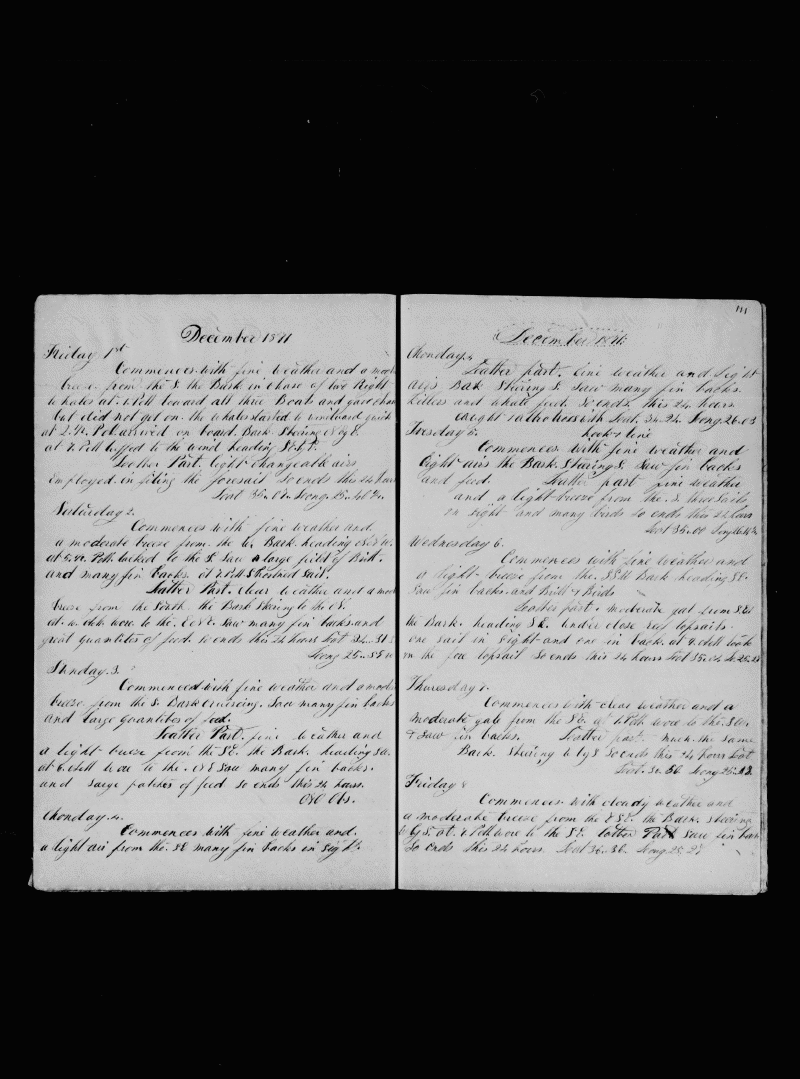 December 1871
Friday 1st
Commences with fine weather and a mod
breeze from the S. the Bark in chase of two Right
Whales at. PM lowerd all three Boats and gave chase
but did not get on. the whales started to windward quick
at 2. PM arrived on board. Bark Stering by E.
at 7. PM luffed to the wind heading by
Leather Part. light changeable airs
Employed in fiting the foresail so ends this 24 hours
Lat Long
Saturday 2.
Commences with fine weather and
a moderate breeze from the W. Bark heading
at PM tacked to the S. Saw a large field of Britt.
and many fin backs. at 7. PM Shortned Sail.
Leather Part. Clear Weather and a mod
breeze from the North the Bark Stering to the
at. AM wore to the. Saw many fin backs and
great quantites of feed. so ends this 24 hours Lat 34..
Long 25..55
Sunday. 3.
Commenced with fine weather and a mode
breeze from the S. Bark cruiceing. Saw many fin backs
and large quantites of feed.
Leather Part. fine weather and
a light breeze from the SE. the Bark. heading SW.
at 6. AM wore to the. Saw many fin backs.
and large patches of feed so ends this 24 hours.
No Obs.
Monday. 4.
Commences with fine weather and.
a light air from the. SE many fin backs in Sight.
111
December 1871.
Monday. 4
Leather part. fine weather and Light
airs Bark Stering S. Saw many fin backs.
Killers and whale feed. So ends this 24 hours
caught with Lat. 34..24 Long. 26..03
Tuesday 5. hook & line
Commences with fine weather and
Light airs the Bark Stering S. Saw fin backs
and feed. Leather part fine weather
and a light breeze from the. S. three Sails
in sight and many birds so ends this 24 hours
Lat 35..00 Long
Wednesday 6.
Commences with fine weather and
a light breeze from the. Bark heading SE.
Saw fin backs and Britt & Birds
Leather part. moderate gal from
the Bark. heading under close reef topsails.
one sail in Sight and one in back. at 9. AM took
in the fore topsail So ends this 24 hours Lat 35..04 Lo. 25..
Thuresday 7.
Commences with clear weather and a
moderate gale from the SE. at 4 PM wore to the. SW.
& Saw fin backs. Leather part. much the same
Bark. Stering by S So ends this 24 hours Lat
Lat. 36.. Long 25..
Friday 8
Commences with cloudy weather and
a moderate breeze from the the Bark. Stering
by S. at. PM wore to the SE. latter Part Saw fin back
So ends this 24 hours. Lat 36.. Long. 25..